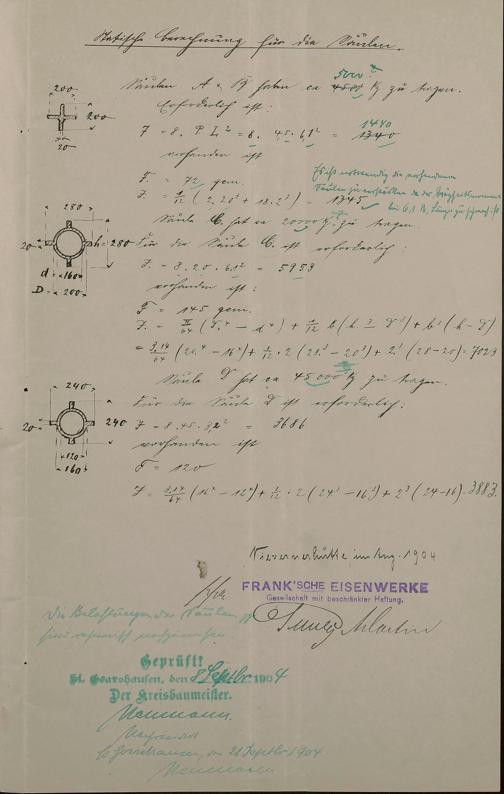 Statische Berechnung für die Säulen.
200
200
20
Säulen A u. B haben ca 4500 kg zu tragen.
5000
Erforderlich ist:
J = 8. P L² = 8. 4,5. 6,1² = 1340
1440
vorhanden ist
F = 72 qcm.
J = 1/12 (2. 20³ + 18. 2³) = 1345
Es ist notwendig die vorhandenen
Säulen zu verstärken da
bei 6,1 m Länge zu schwach ist
280
h = 280
20
d = 160
D = 200
Säule C. hat ca 20000 kg zu tragen
Für die Säule C. ist erforderlich:
J = 8. 20. 6,1² = 5953
vorhanden ist:
F = 145 qcm.
J = π/64 (D⁴ - d⁴) + 1/12 b (h³ - D³) + b³ (h - D)
= 3,14/64 (20⁴ - 16⁴) + 1/12 . 2 (28³ - 20³) + 2³ (28-20) = 7029
Säule D hat ca 45000 kg zu tragen.
240
240
20
120
160
Für die Säule D ist erforderlich:
J = 8. 45. 3,2² = 3686
vorhanden ist
F = 120
J = 3,14/64 (16⁴ - 12⁴) + 1/12 . 2 (24³ - 16³) + 2³ (24-16) = 3883.
Nievernerhütte im Aug. 1904
FRANK'SCHE EISENWERKE
Gesellschaft mit beschränkter Haftung.
Martin
Die Belastungen der Säulen
sind
Geprüft!
St. Goarshausen, den 8 Septbr 1904
Der Kreisbaumeister.
Neumann.
St Goarshausen, den 21 Septbr 1904
Neumann